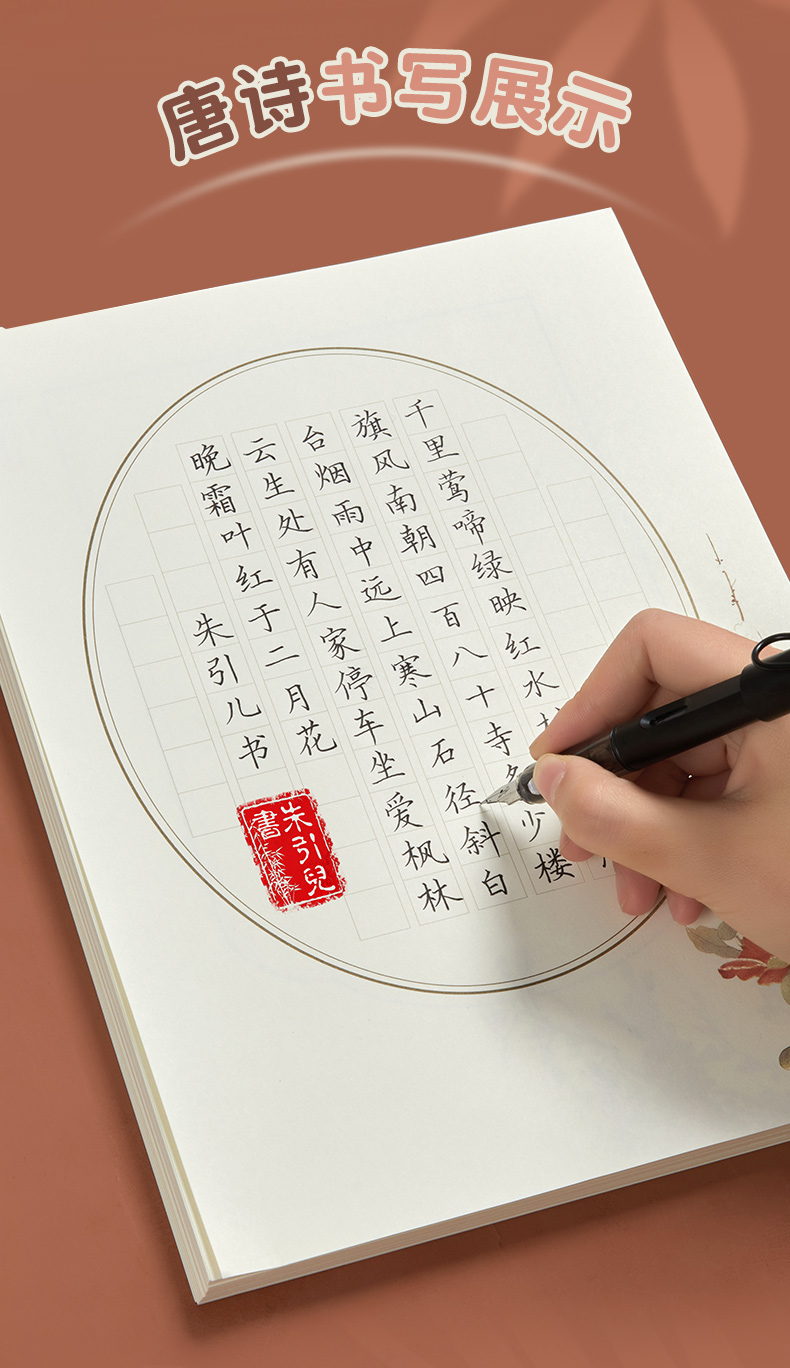 唐诗书写展示
千里莺啼绿映红水
旗风南朝四百八十寺多少楼
台烟雨中远上寒山石径斜白
云生处有人家停车坐爱枫林
晚霜叶红于二月花
朱引儿书
朱引兒
書